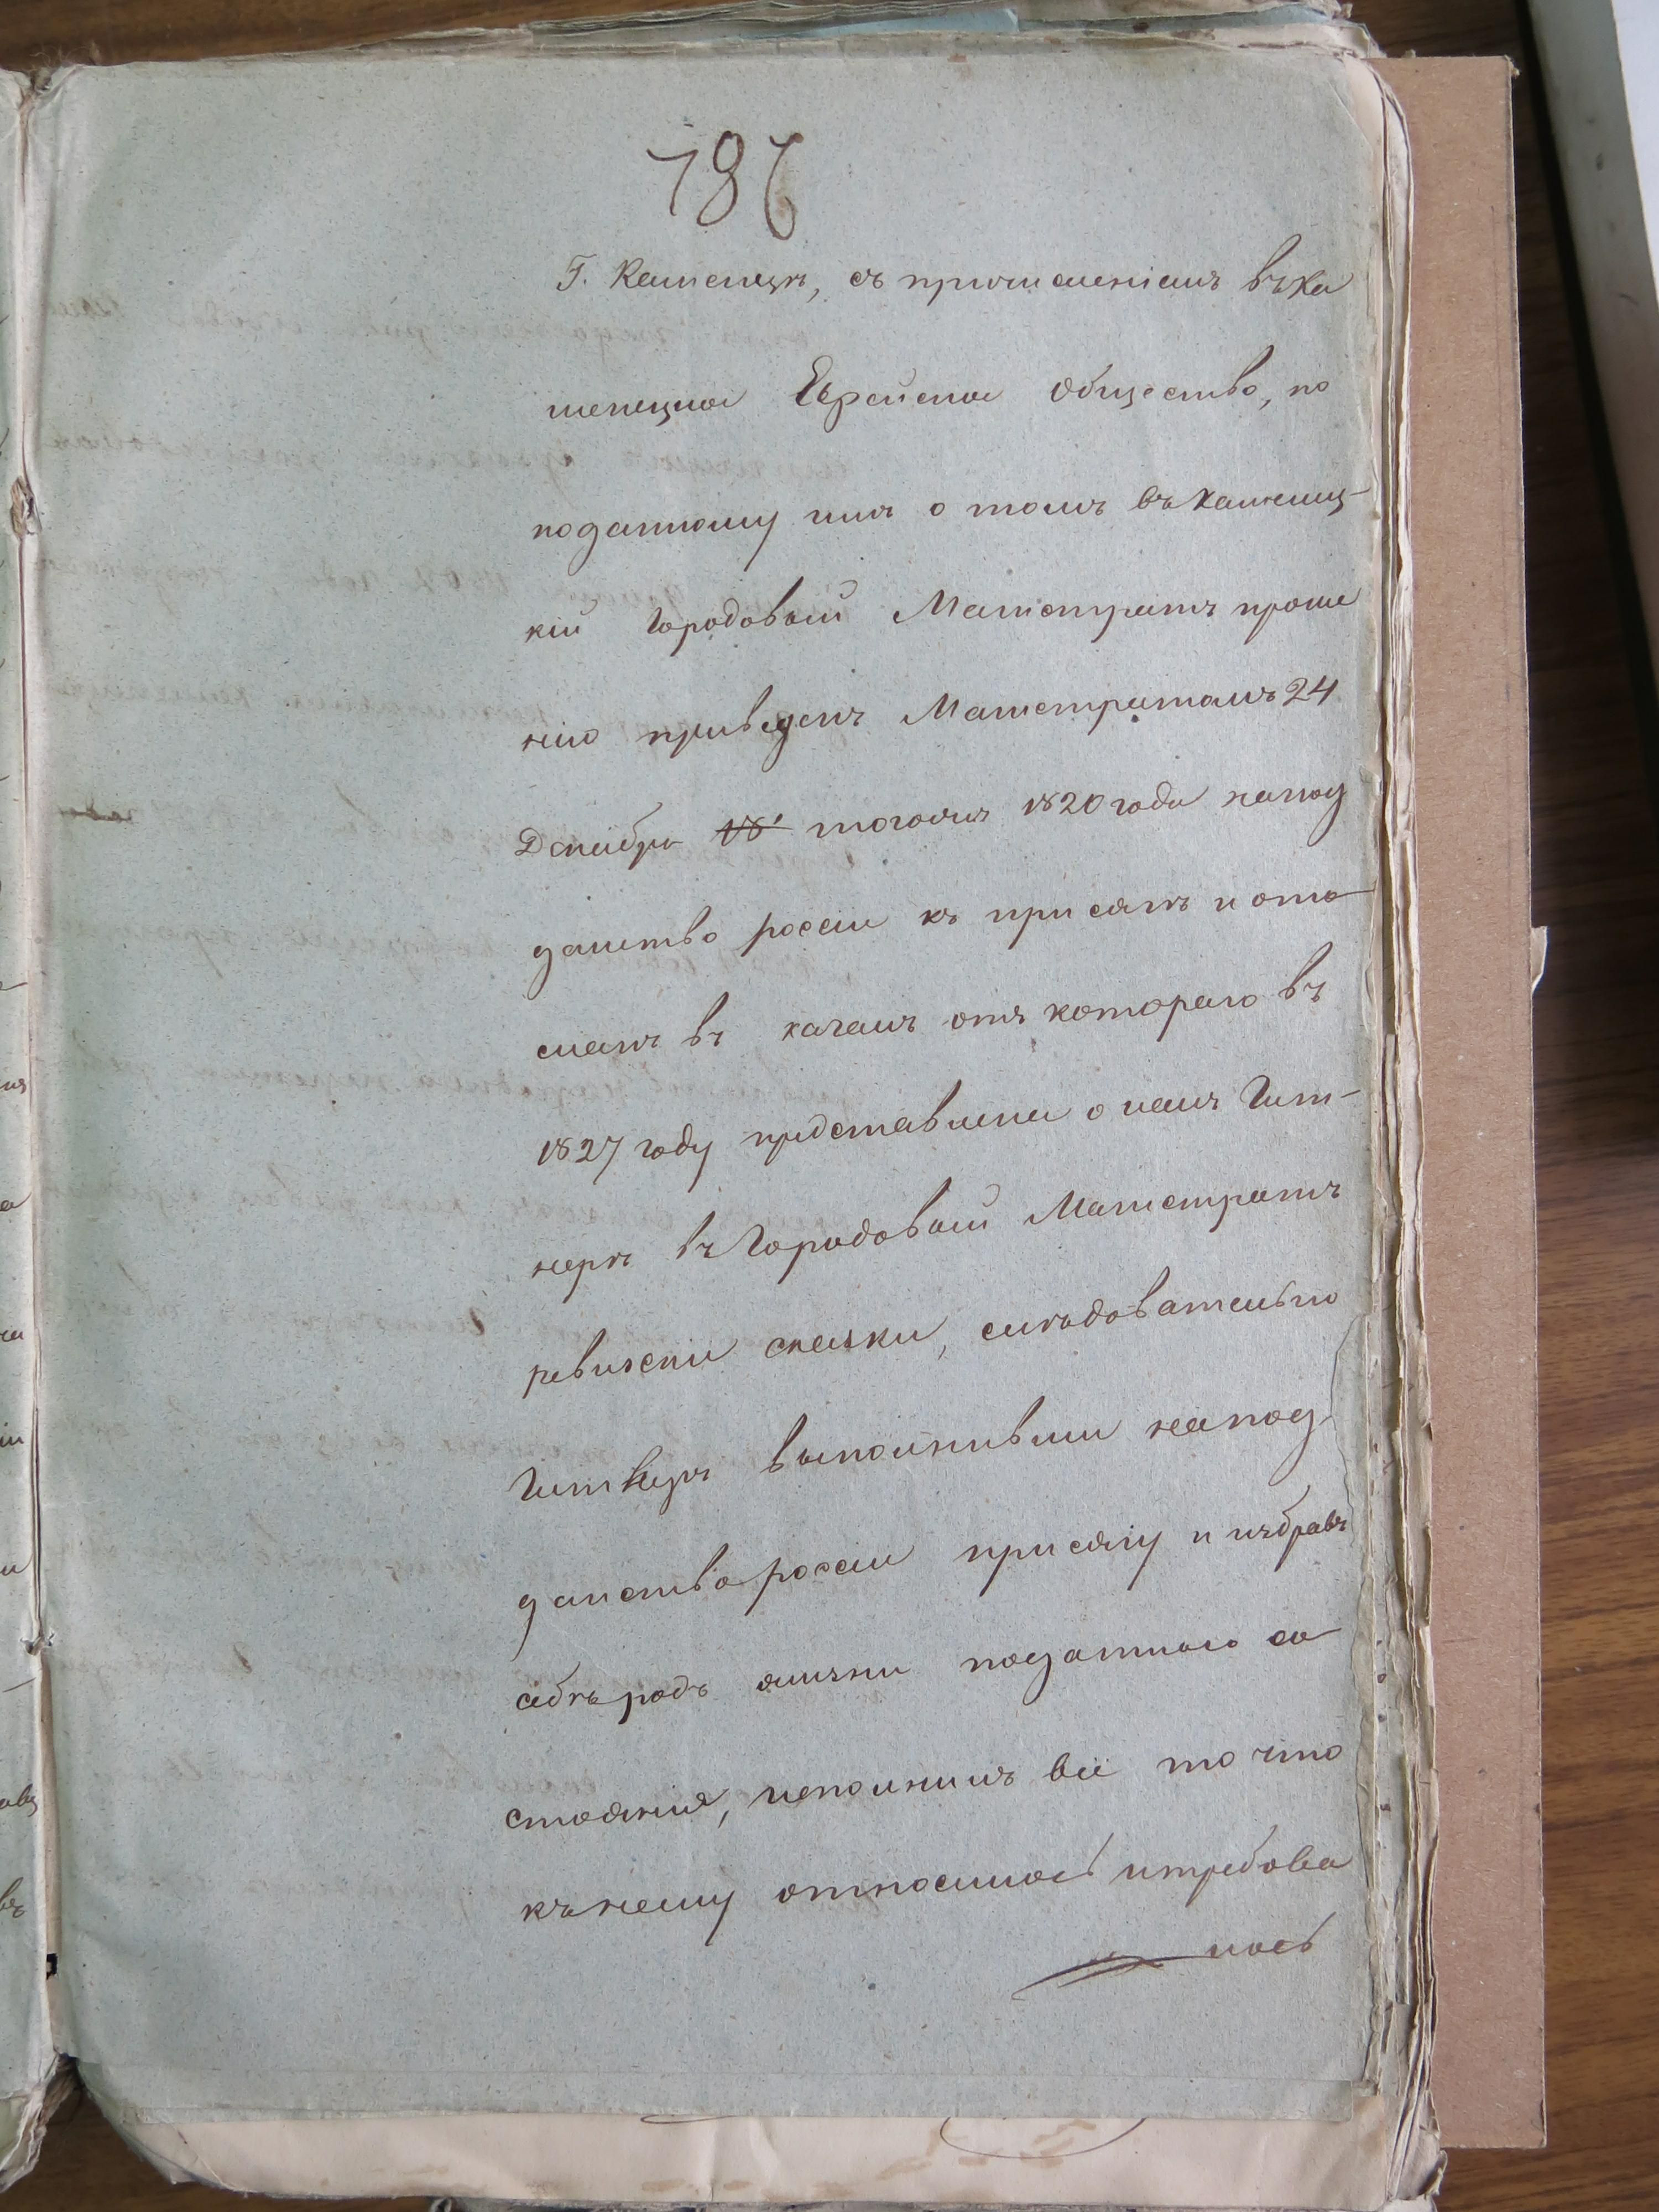 786
Г. Каменцѣ, съ причисленіемъ въ Ка
менецкое Еврейское Общество, по
поданному имъ о томъ въ Каменец-
кій Городовый Магистратъ проше
нію приведенъ Магистратомъ 24
Декабря 18 тогожъ 1820 года на под
данство россіи къ присягѣ и ото
сланъ въ кагалъ отъ котораго въ
1827 году представлены о немъ Гит-
нерѣ въ Городовый Магистратъ
ревизскіе сказки, слѣдовательно
Гитнеръ выполнивши на под
данство россіи присягу и избравъ
себѣ родъ жизни податнаго со
стоянія, исполнилъ всё то что
къ нему относилось и требова
лось